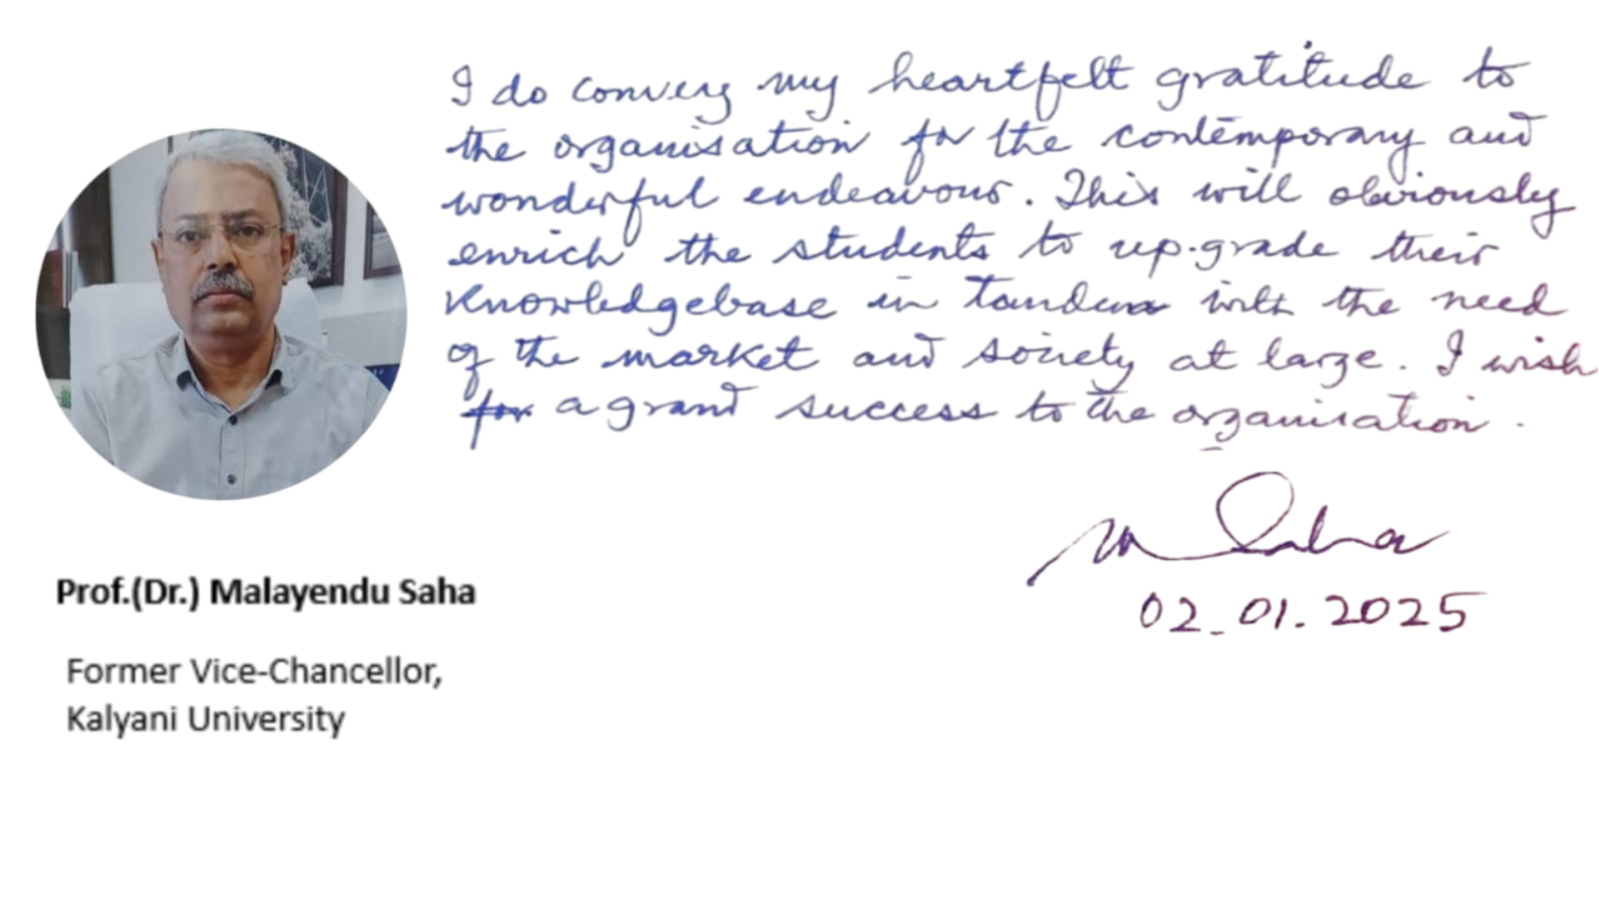 I do convey my heartfelt gratitude to
the organisation for the contemporary and
wonderful endeavour. This will obviously
enrich the students to up-grade their
knowledgebase in tandem with the need
of the market and society at large. I wish
for a grand success to the organisation.
M Saha
02.01.2025
Prof.(Dr.) Malayendu Saha
Former Vice-Chancellor,
Kalyani University